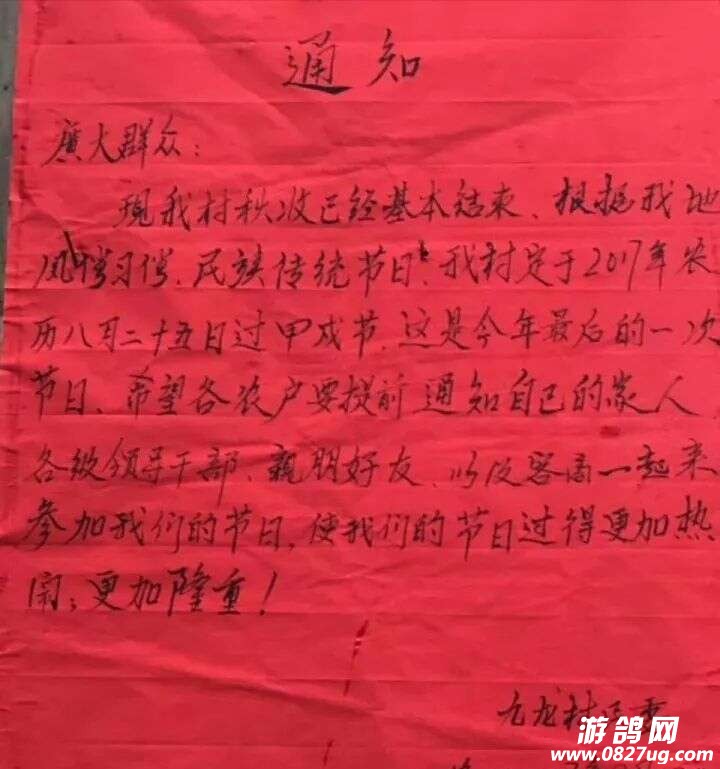 通知
廣大群众：
现我村秋收已经基本结束、根据我地
风俗习俗、民族传统节日、我村定于2017年农
历八月二十五日过甲戌节、这是今年最后的一次
节日、希望各农户要提前通知自己的家人、
各级领导干部、親朋好友、以及客商一起来
参加我们的节日，使我们的节日过得更加热
闹；更加隆重！
九龙村
游鸽网
www.0827ug.com